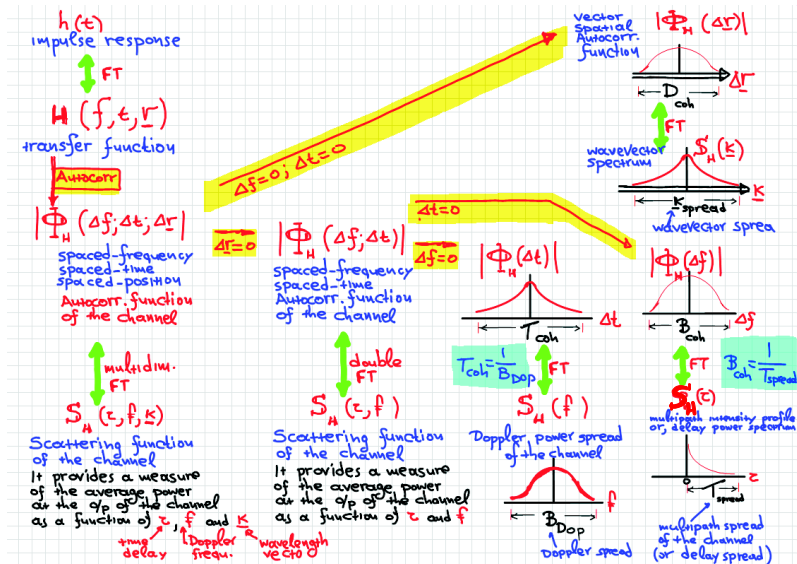 h(t)
impulse response
FT
H (f,t,r)
transfer function
Autocorr
|Φ_H (Δf;Δt;Δr)|
spaced-frequency
spaced-time
spaced-position
Autocorr. function
of the channel
multidim.
FT
S_H (τ,f,k)
Scattering function
of the channel
It provides a measure
of the average power
at the o/p of the channel
as a function of τ, f and k
time
delay
Doppler
frequ.
wavelength
vecto
Δf=0; Δt=0
Δr=0
|Φ_H (Δf;Δt)|
spaced-frequency
spaced-time
Autocorr. function
of the channel
double
FT
S_H (τ,f)
Scattering function
of the channel
It provides a measure
of the average power
at the o/p of the channel
as a function of τ and f
Δt=0
Δf=0
|Φ_H (Δt)|
Δt
T_coh
T_coh = 1/B_Dop
FT
S_H (f)
Doppler power spread
of the channel
f
B_Dop
Doppler spread
vector
spatial
Autocorr.
function
|Φ_H (Δr)|
Δr
D_coh
FT
wavevector
spectrum
S_H (k)
k
k_spread
wavevector sprea
|Φ_H (Δf)|
Δf
B_coh
FT
B_coh = 1/T_spread
S_H (τ)
multipath intensity profile
or, delay power spectrum
τ
0
T_spread
multipath spread
of the channel
(or delay spread)